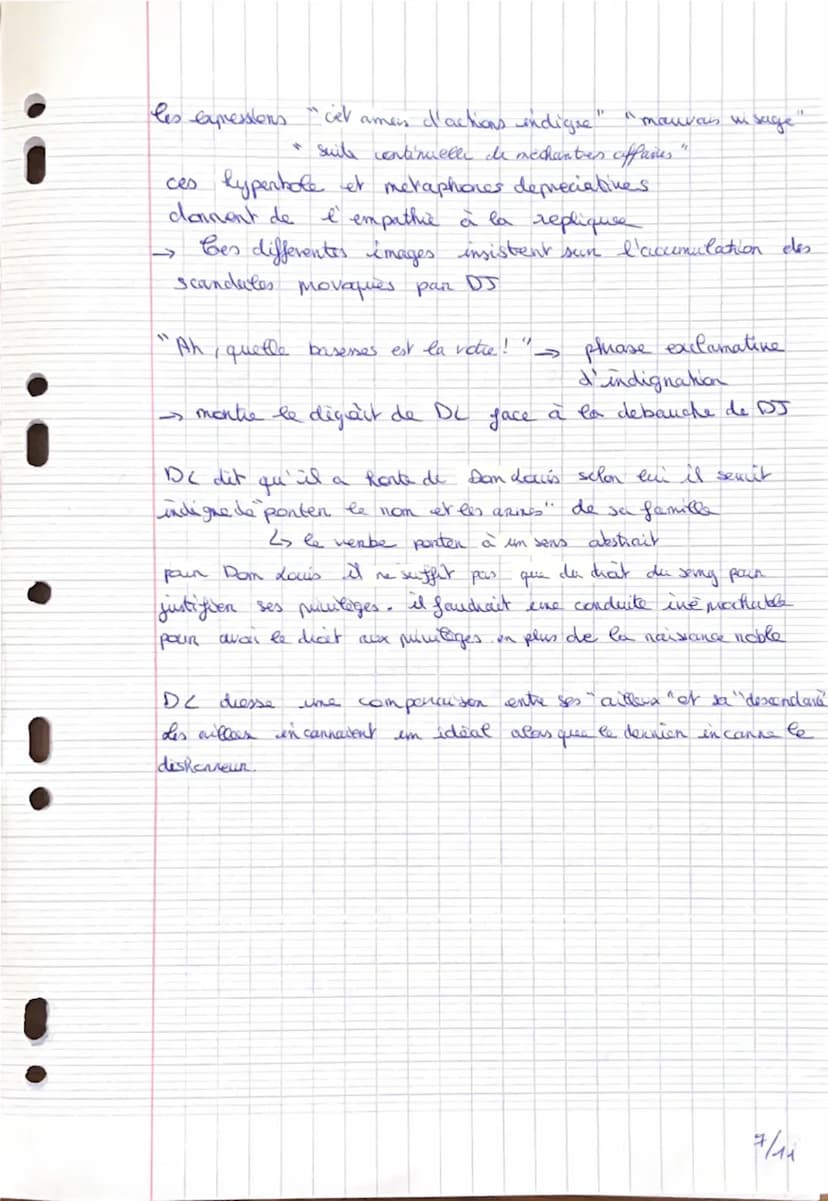 les expressions "cet amas d'actions indigne" "mauvais visage"
" suite continuelle de méchantes affaires"
ces hyperbole et métaphores depréciatives
donnent de l'empathie à la replique
→ Ces differentes images insistent sur l'accumulation des
scandales provoqués par DJ
"Ah, quelle basesses est la votre!" → phrase exclamative
d'indignation
→ montre le dégoût de DL face à la debauche de DJ
DL dit qu'il a honte de Dom Louis selon lui il serait
indigne de "porter le nom et les armes" de sa famille
↳ le verbe porter à un sens abstrait
pour Dom Louis il ne suffit pas que du droit du sang pour
justifier ses privilèges. il faudrait une conduite
pour avoir le droit aux privilèges en plus de la naissance noble
DL dresse une comparaison entre ses "ailleux" et sa "descendant"
Les ailleux incarnaient un idéal alors que le dernier incarne le
deshonneur.
7/11